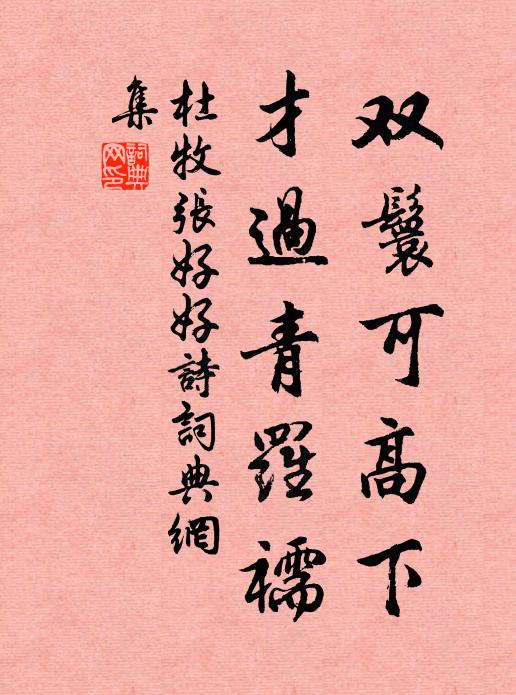 双鬟可高下
才過青羅襦
杜牧張好好詩詞典網
集
詞典網印